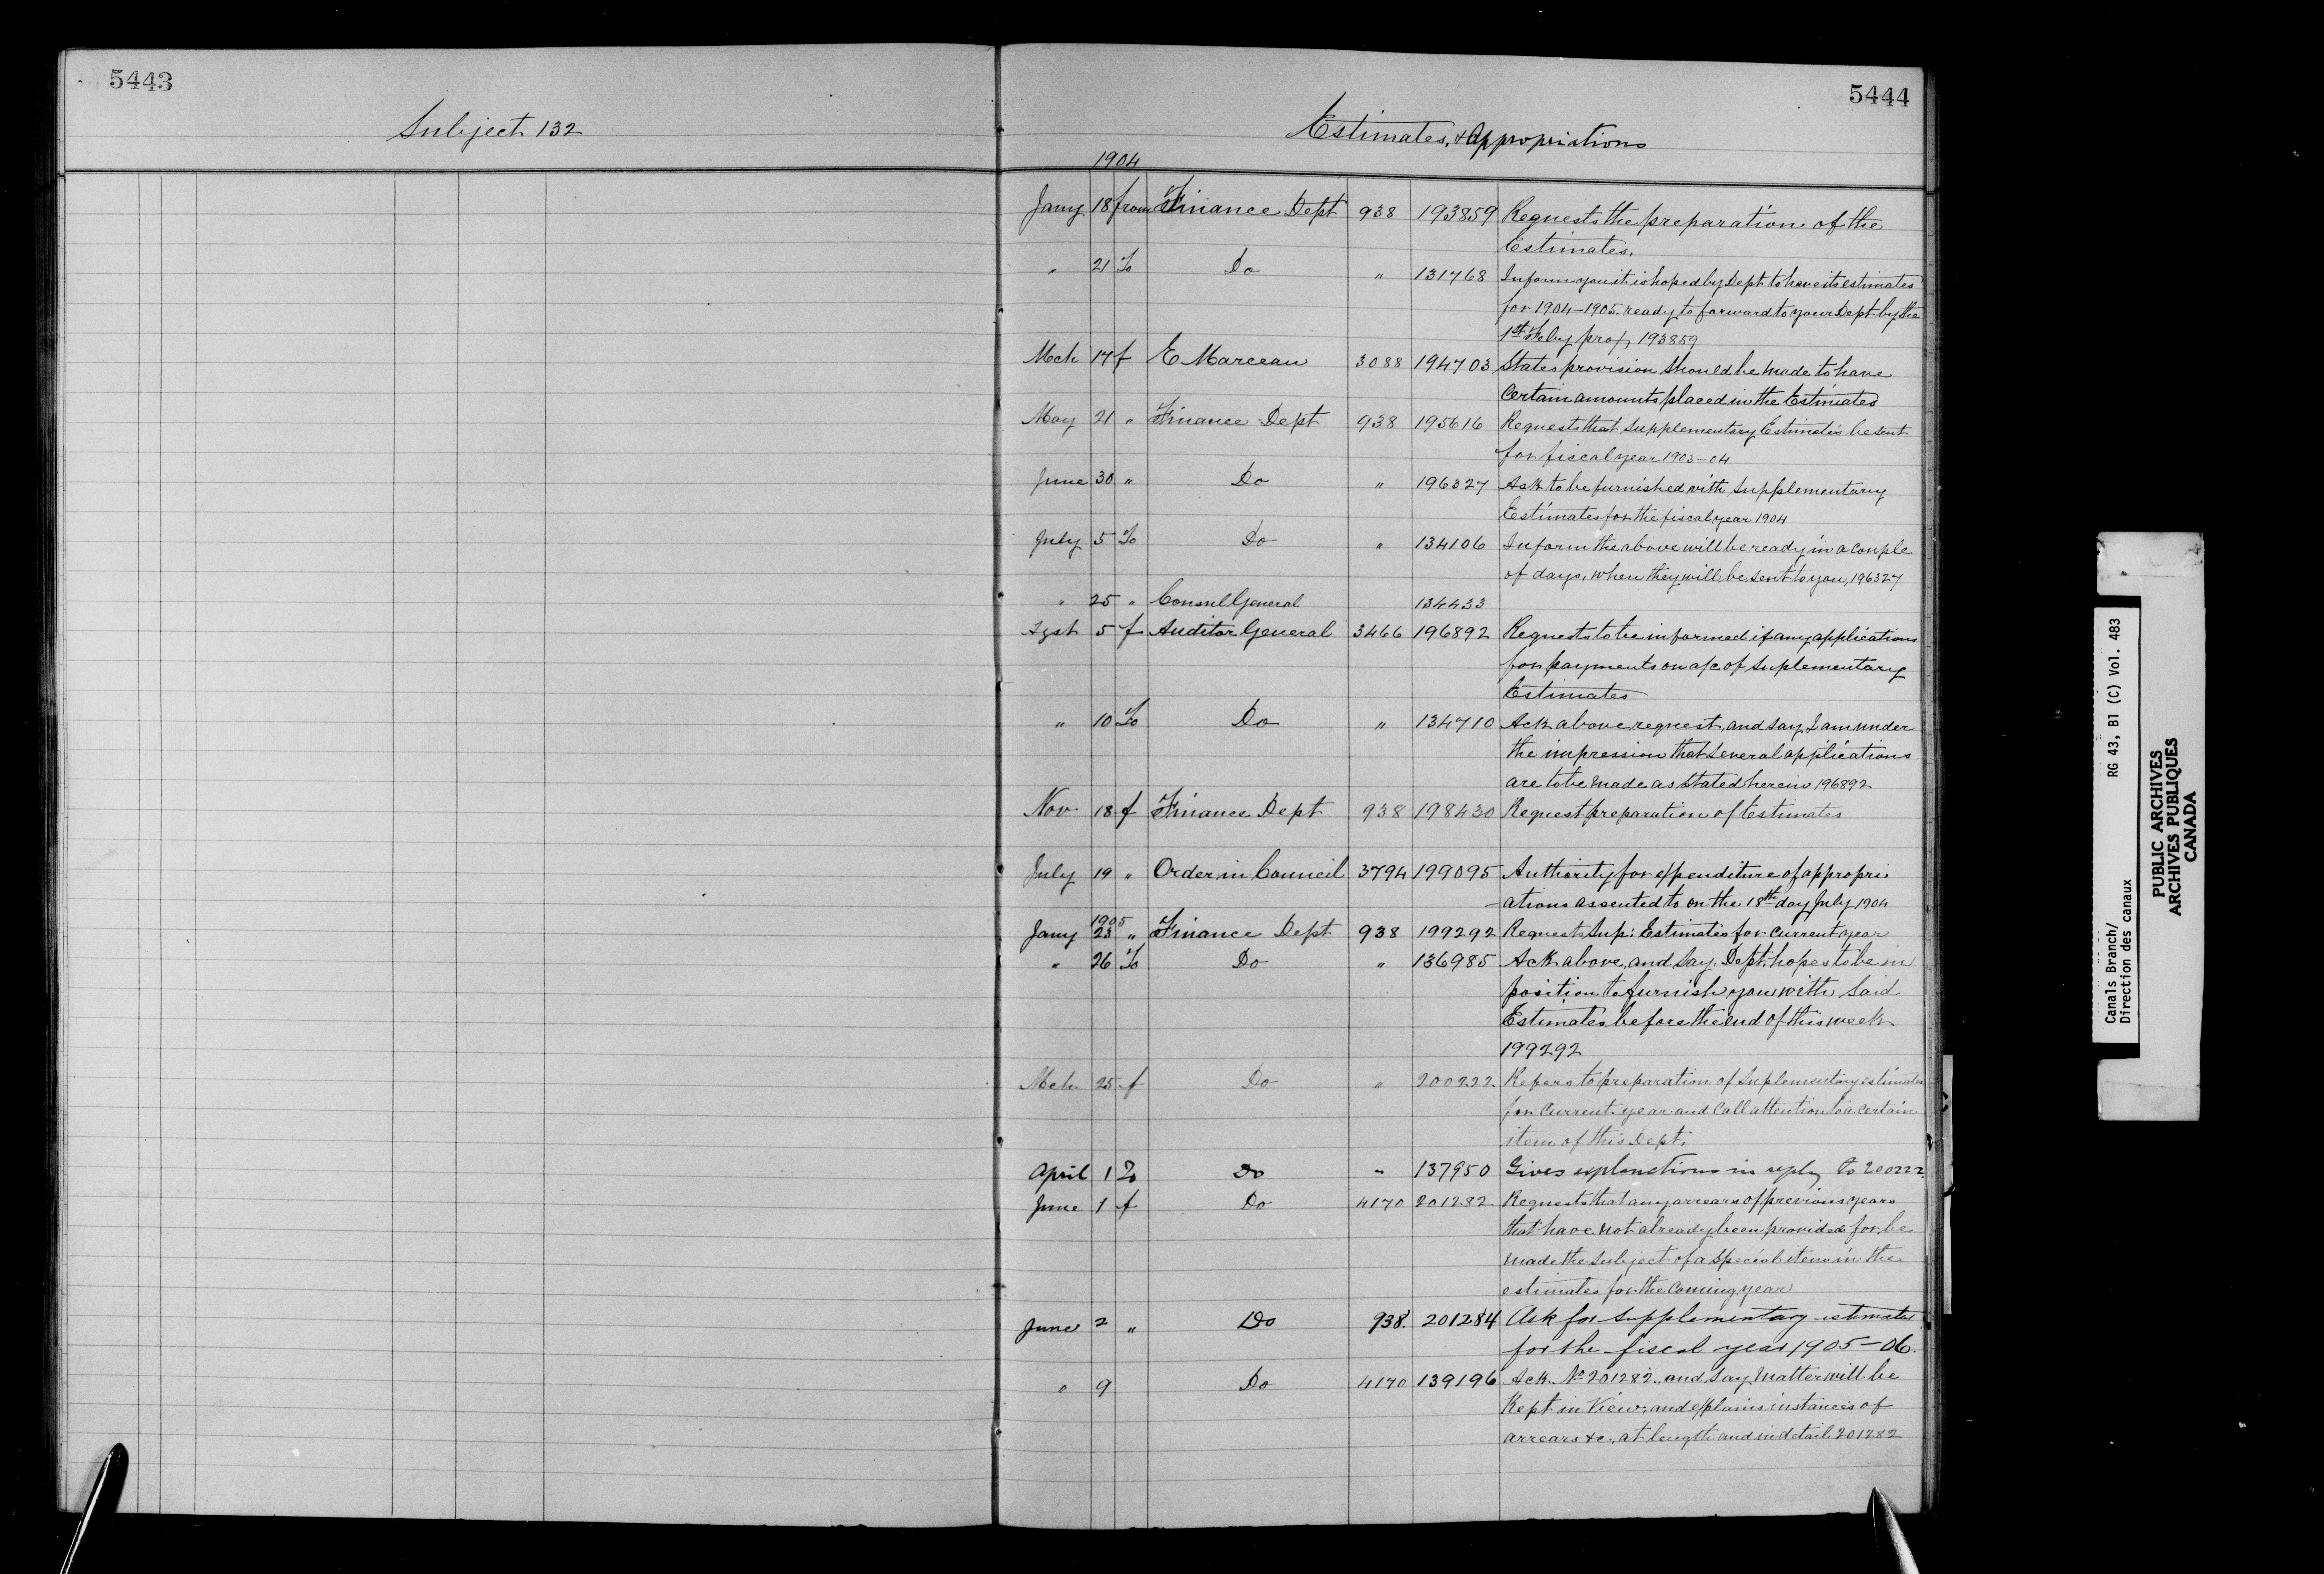 5443
Subject 132
5444
Estimates, & Appropriations
1904
Jany 18 from Finance Dept 938 193859 Requests the preparation of the
Estimates.
" 21 To Do " 131768 Inform you it is hoped by Dept to have its estimates
for 1904-1905. ready to forward to your Dept by the
1st Feby prox, 193859
Mch 17 f E Marceau 3088 194703 States provision should be made to have
Certain amounts placed in the Estimates
May 21 " Finance Dept 938 195616 Requests that Supplementary Estimates be sent
for fiscal year 1903-04
June 30 " Do " 196327 Ask to be furnished with Supplementary
Estimates for the fiscal year 1904
July 5 To Do " 134106 Inform the above will be ready in a couple
of days, when they will be sent to you, 196327
" 25 " Consul General 134433
Agst 5 f Auditor General 3466 196892 Requests to be informed if any applications
for payments on a/c of Suplementary
Estimates
" 10 To Do " 134710 Ack above request, and say I am under
the impression that several applications
are to be made as stated herein 196892
Nov 18 f Finance Dept 938 198430 Request preparation of Estimates
July 19 " Order in Council 3794 199095 Authority for expenditure of appropri
-ations assented to on the 18th day July 1904
1905
Jany 23 " Finance Dept 938 199292 Requests Sup: Estimates for current year
" 26 To Do " 136985 Ack above, and say, Dept. hopes to be in
position to furnish you with said
Estimates before the end of this week
199292
Mch 25 f Do " 200222 Refers to preparation of Suplementary estimates
for current year and call attention to a certain
item of this Dept.
April 1 To Do " 137950 Gives explanations in reply to 200222
June 1 f Do 4170 201282 Requests that any arrears of previous years
that have not already been provided for, be
made the subject of a special item in the
estimates for the coming year
June 2 " Do 938. 201284 Ask for supplementary estimates
for the fiscal year 1905-06.
" 9 Do 4170 139196 Ack. No 201282, and say matter will be
Kept in View; and explains instances of
arrears &c., at length and in detail 201282
Canals Branch/ RG 43, B1 (C) Vol. 483
Direction des canaux
PUBLIC ARCHIVES
ARCHIVES PUBLIQUES
CANADA